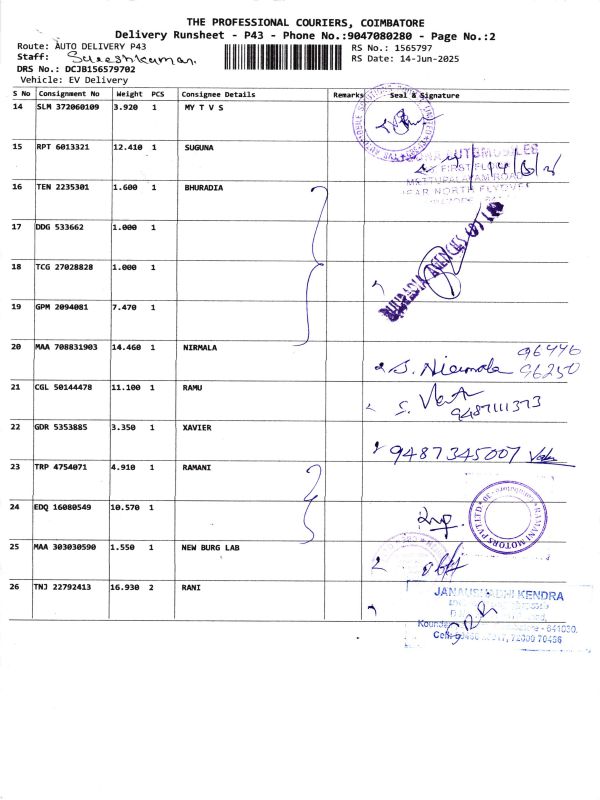 THE PROFESSIONAL COURIERS, COIMBATORE
Delivery Runsheet - P43 - Phone No.:9047080280 - Page No.:2
Route: AUTO DELIVERY P43 RS No.: 1565797
Staff: Sureshkumar. RS Date: 14-Jun-2025
DRS No.: DCJB156579702
Vehicle: EV Delivery
S No Consignment No Weight PCS Consignee Details Remarks Seal & Signature
14 SLM 372060109 3.920 1 MY T V S
15 RPT 6013321 12.410 1 SUGUNA
AUTOMOBILES
FIRST FLOOR
METTUPALAYAM ROAD
NEAR NORTH FLYOVER
16 TEN 2235301 1.600 1 BHURADIA
17 DDG 533662 1.000 1
BHURADIA AGENCIES
18 TCG 27028828 1.000 1
19 GPM 2094081 7.470 1
20 MAA 708831903 14.460 1 NIRMALA
S. Nirmala 96446
96250
21 CGL 50144478 11.100 1 RAMU
9487111373
22 GDR 5353885 3.350 1 XAVIER
9487345007
23 TRP 4754071 4.910 1 RAMANI
RAMANI MOTORS PVT LTD
24 EDQ 16080549 10.570 1
25 MAA 303030590 1.550 1 NEW BURG LAB
26 TNJ 22792413 16.930 2 RANI
JANAUSHADHI KENDRA
641030,
72000 70466